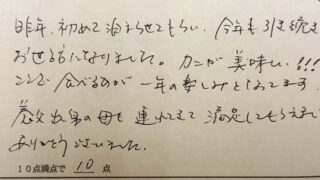 昨年、初めて泊まらせてもらい、今年も引き続き
お世話になりました。カニが美味しい!!!
ここで食べるのが一年の楽しみとなってます
出身の母も連れてきて満足してもらえて
ありがとうございました。
10点満点で 10 点